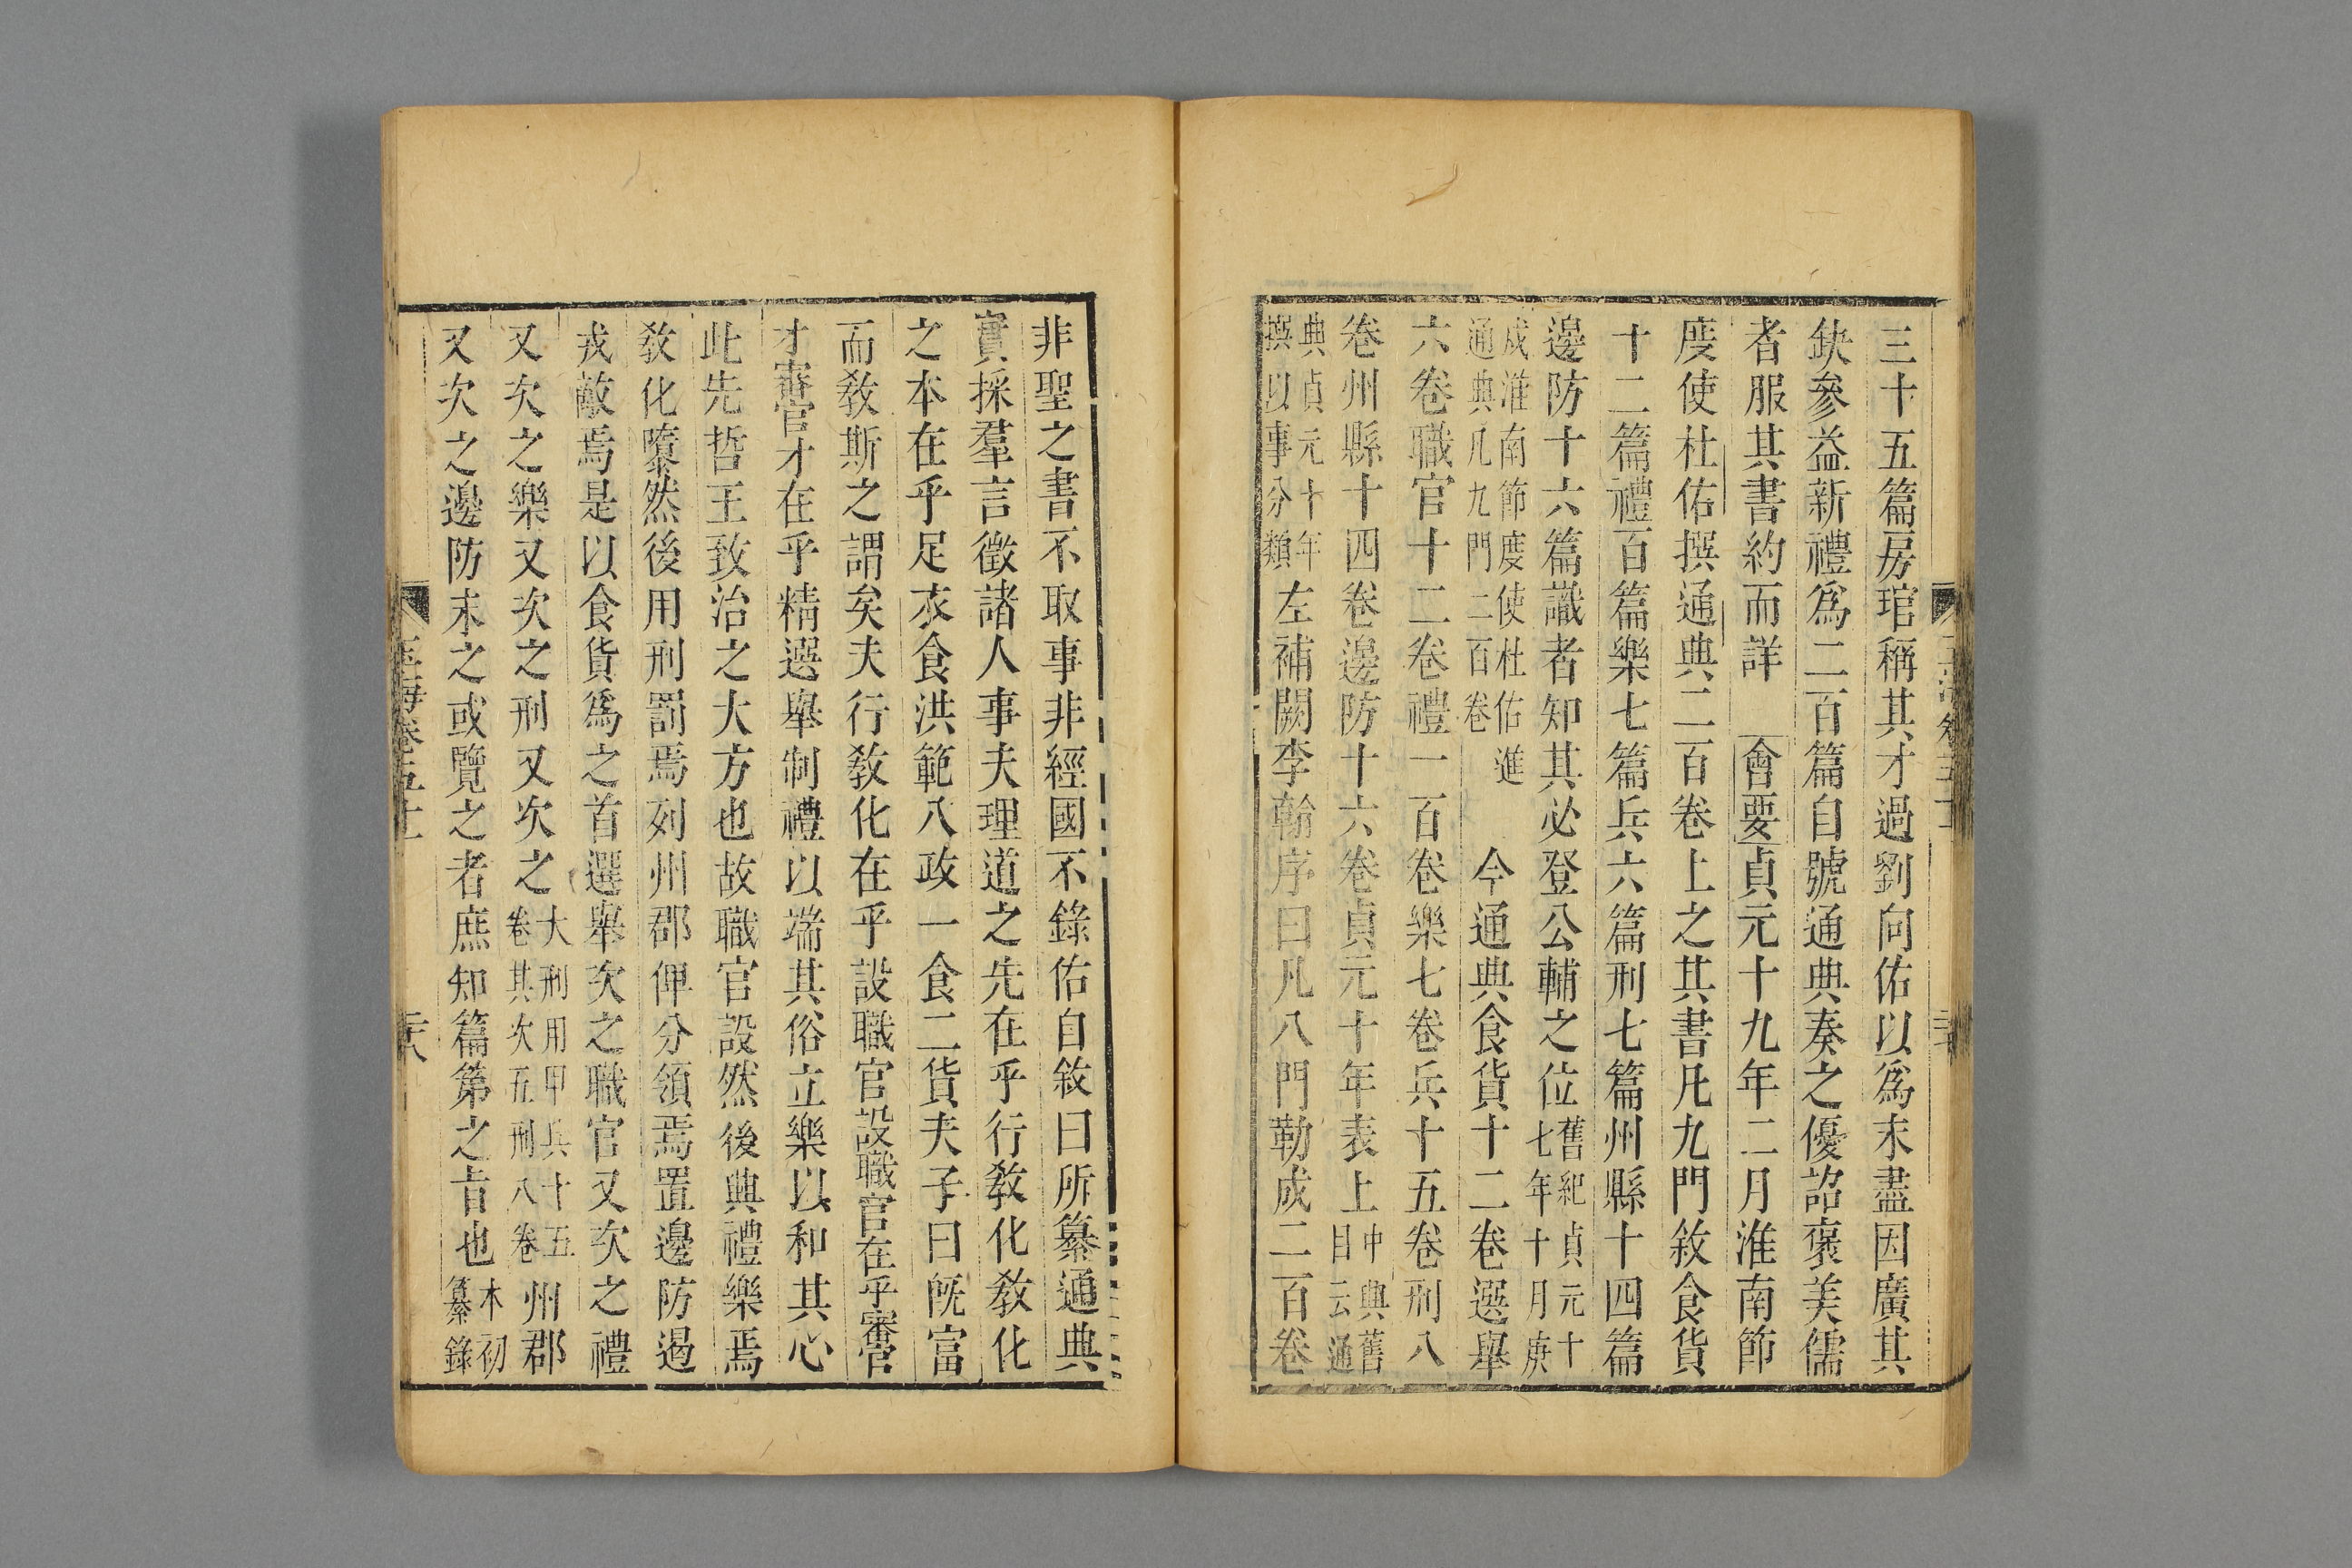 三十五篇房琯稱其才過劉向佑以爲未盡因廣其
缺參益新禮爲二百篇自號通典奏之優詔褒美儒
者服其書約而詳 會要貞元十九年二月淮南節
度使杜佑撰通典二百卷上之其書凡九門敘食貨
十二篇禮百篇樂七篇兵六篇刑七篇州縣十四篇
邊防十六篇識者知其必登公輔之位舊紀貞元十七年十月庚
成淮南節度使杜佑進通典凡九門二百卷 今通典食貨十二卷選舉
六卷職官十二卷禮一百卷樂七卷兵十五卷刑八
卷州縣十四卷邊防十六卷貞元十年表上中興舊目云通
典貞元十年撰以事分類左補闕李翰序曰凡八門勒成二百卷
非聖之書不取事非經國不錄佑自敘曰所纂通典
實採羣言徵諸人事夫理道之先在乎行敎化敎化
之本在乎足衣食洪範八政一食二貨夫子曰旣富
而敎斯之謂矣夫行敎化在乎設職官設職官在乎審官
才審官才在乎精選舉制禮以端其俗立樂以和其心
此先哲王致治之大方也故職官設然後興禮樂焉
敎化隳然後用刑罰焉列州郡俾分領焉置邊防遏
戎敵焉是以食貨爲之首選舉次之職官又次之禮
又次之樂又次之刑又次之大刑用甲兵十五卷其次五刑八卷州郡
又次之邊防末之或覽之者庶知篇第之旨也本初纂錄
玉海卷五十一